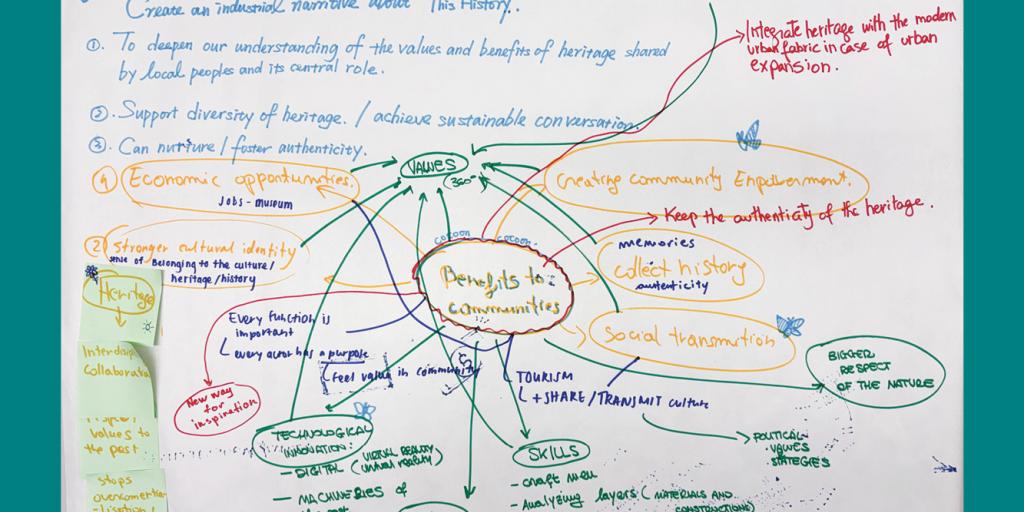 Create an industrial narrative about This History.
①. To deepen our understanding of the values and benefits of heritage shared
by local peoples and its central role.
②. Support diversity of heritage. / achieve sustainable conversation.
③. Can nurture / foster authenticity.
Integrate heritage with the modern
urban fabric in case of urban
expansion.
VALUES
(360°
Economic opportunities.
Jobs - museum
Creating community Empowerment.
Keep the authenticity of the heritage.
② Stronger cultural identity
sense of Belonging to the culture/
heritage/history
cocoon cocoon.
Benefits to:
communities
memories
collect history
autenticity
Social transmition
Heritage
Every function is
important
every actor has a purpose
Feel value in community
New way
for
inspiration
TOURISM
+ SHARE/TRANSMIT culture
BIGGER
RESPECT
OF THE NATURE
POLITICAL
VALUES
STATEGIES
Collaboration
values to
the past
stops
TECHNOLOGICAL
INNOVATION:
VIRTUAL REALITY
- DIGITAL (virtual reality)
- MACHINERIES of
SKILLS
- craft men
- Analyzing layers (MATERIALS AND
CONSTRUCTIONS)